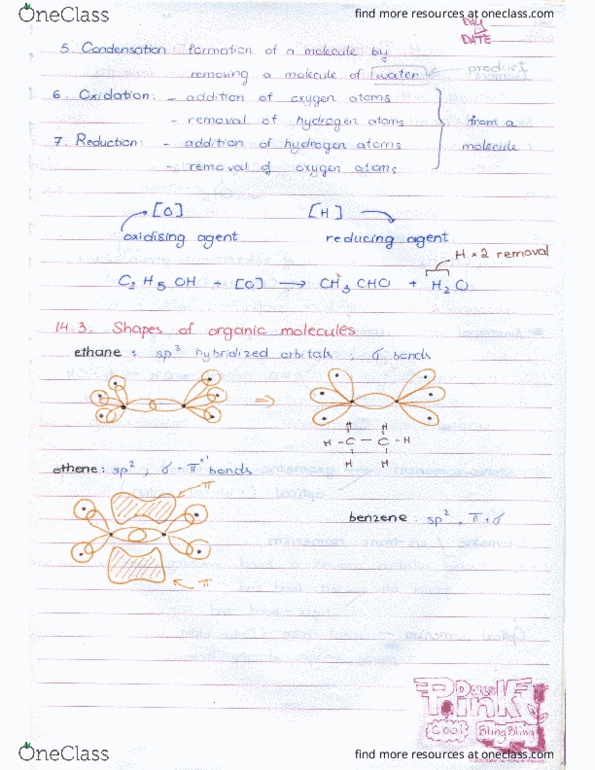 OneClass
find more resources at oneclass.com
DAY
DATE
5. Condensation formation of a molecule by
removing a molecule of water product
6. Oxidation: - addition of oxygen atoms
- removal of hydrogen atoms from a
7. Reduction: - addition of hydrogen atoms molecule
- removal of oxygen atoms
[O] [H]
oxidising agent reducing agent
H × 2 removal
C2 H5 OH + [O] → CH3 CHO + H2O
14.3. Shapes of organic molecules
ethane : sp3 hybridized orbitals ; σ bonds
⇒
H H
H - C - C - H
H H
ethene: sp2 ; σ - π bonds
π
benzene: sp2, π+σ
π
Pink
Cool BlingBling
OneClass
find more resources at oneclass.com